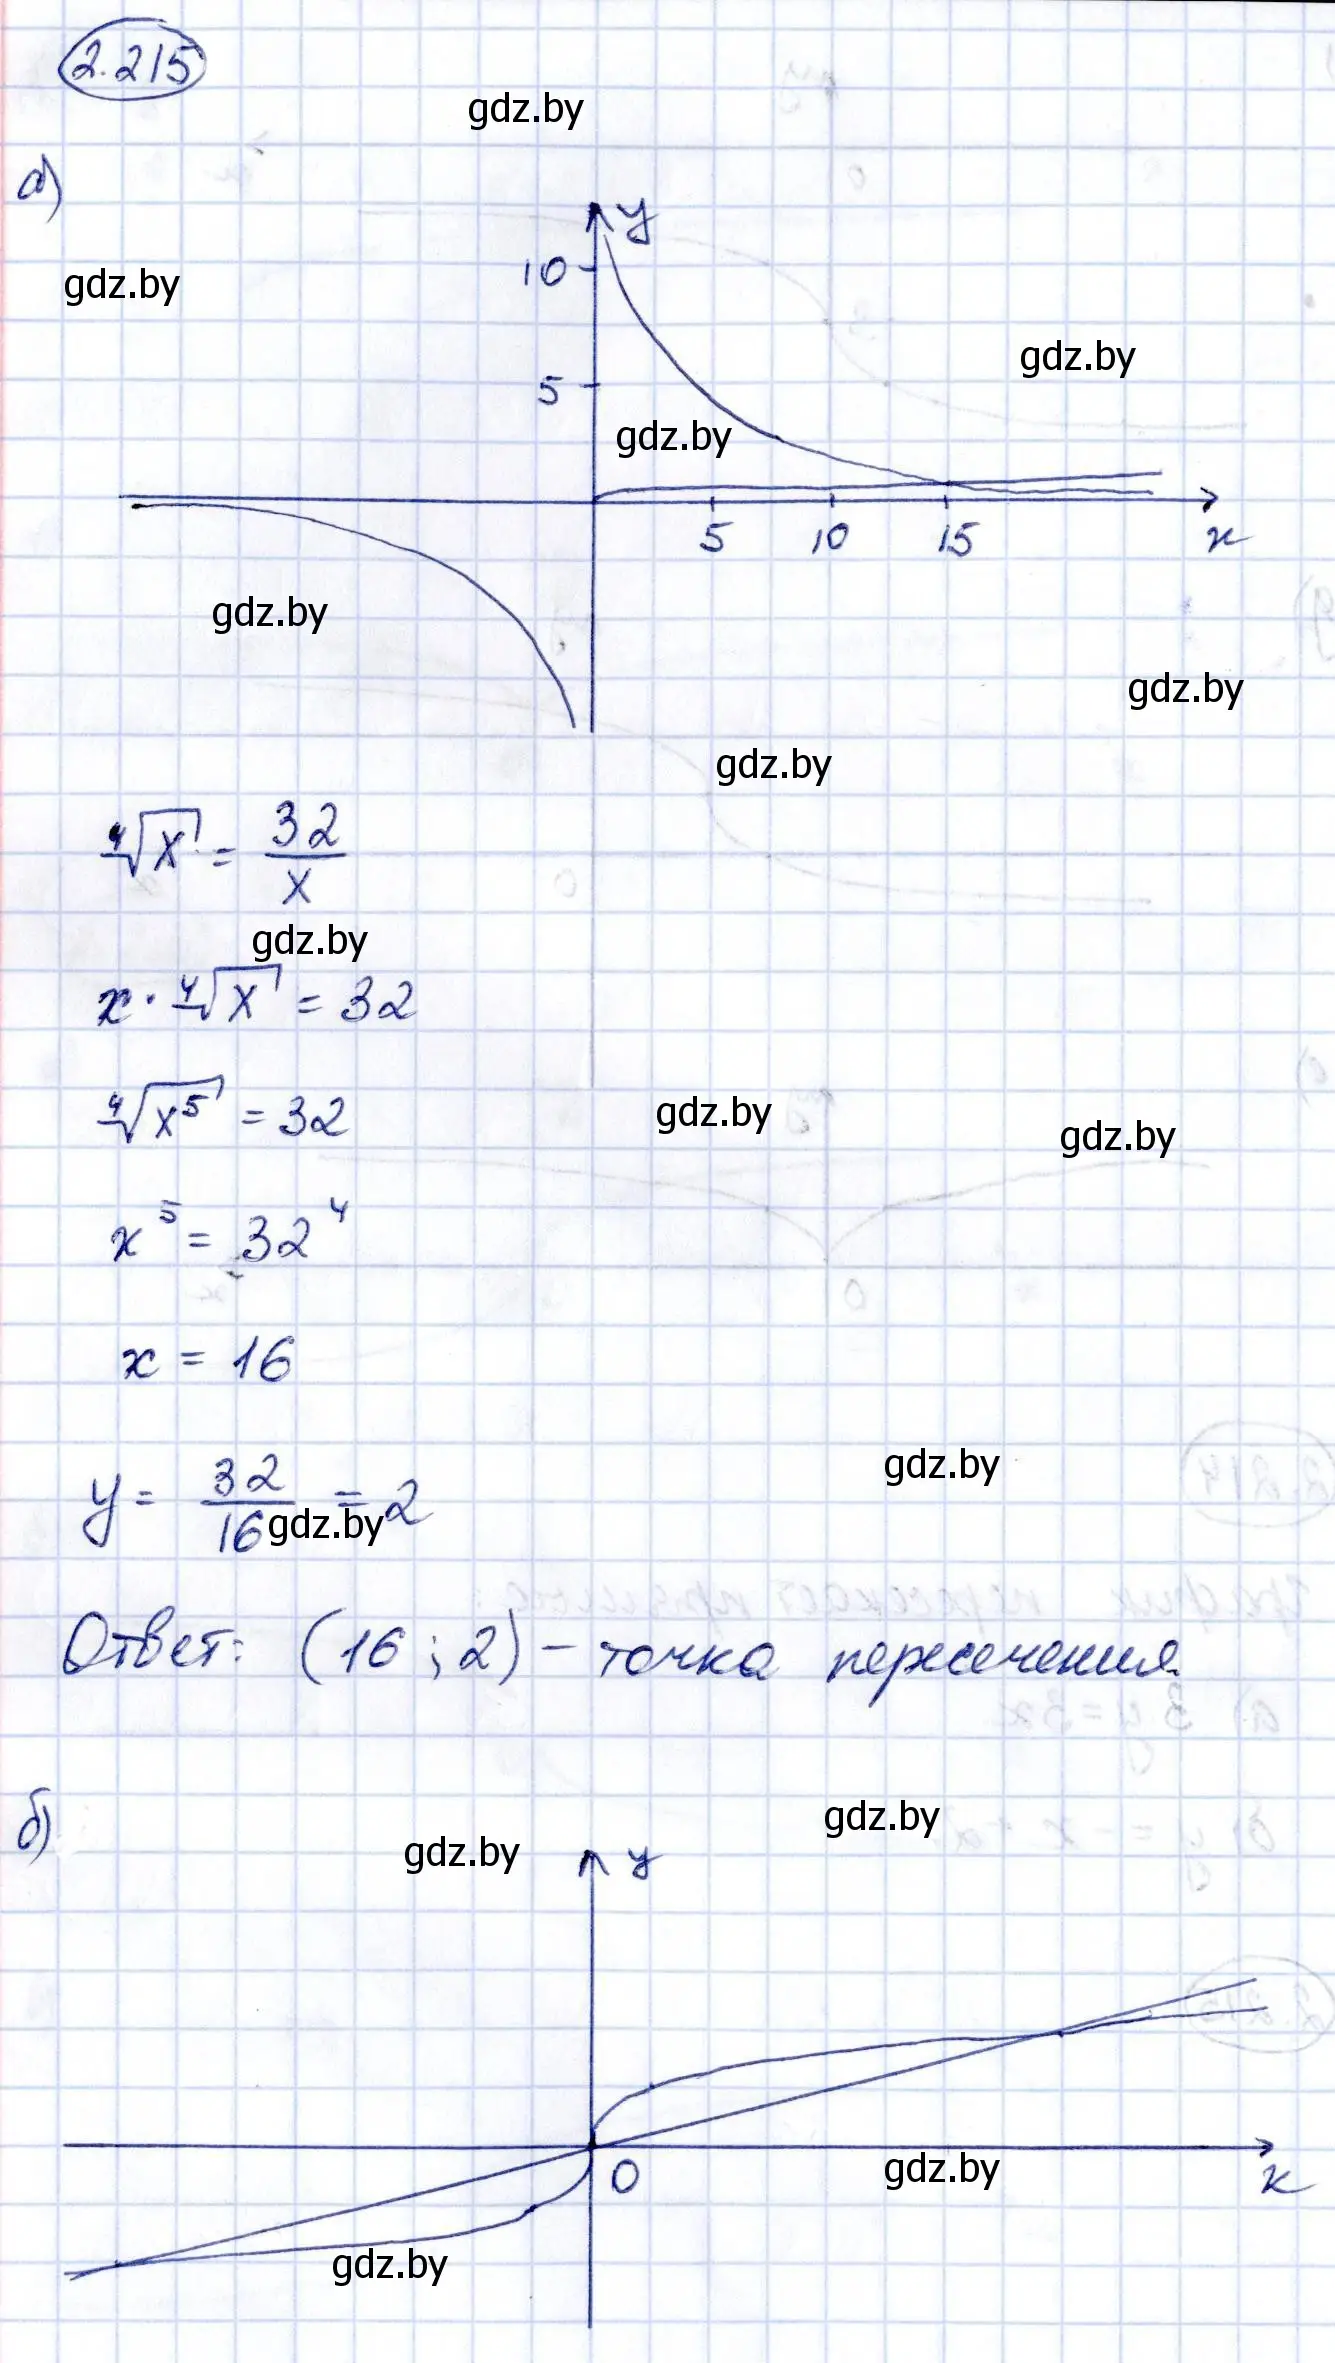 2.215
gdz.by
а)
y
gdz.by
10
gdz.by
5
gdz.by
5 10 15 x
gdz.by
gdz.by
gdz.by
⁴√x = 32/x
gdz.by
x · ⁴√x = 32
⁴√x⁵ = 32
gdz.by
gdz.by
x⁵ = 32⁴
x = 16
gdz.by
y = 32/16 = 2
gdz.by
Ответ: (16 ; 2) – точка пересечения.
б)
gdz.by
gdz.by
y
0
gdz.by
x
gdz.by